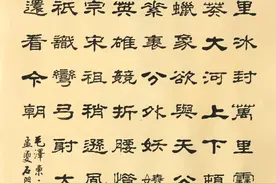 里冰封萬里雪
莽大河上下頓
蠟象欲與天公
素裹分外妖嬈
英雄競折腰惜
宗宋祖稍遜風
祇識彎弓射大
還看今朝
毛澤東